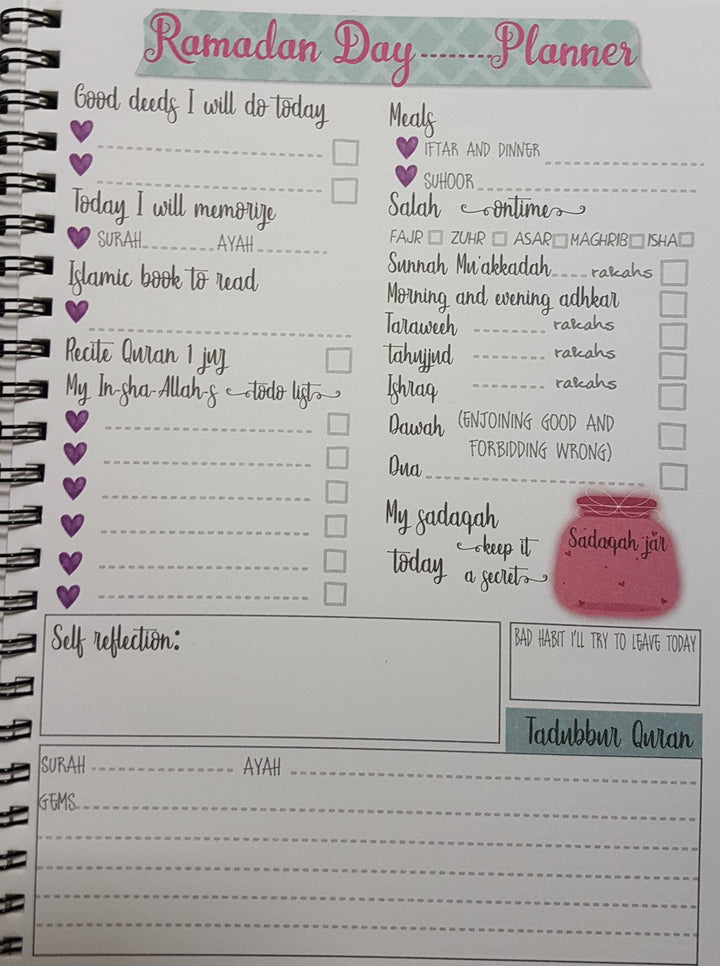 Ramadan Day--------Planner
Good deeds I will do today
Today I will memorize
SURAH AYAH
Islamic book to read
Recite Quran 1 juz
My In-sha-Allah-s todo list
Meals
IFTAR AND DINNER
SUHOOR
Salah ontime
FAJR ZUHR ASAR MAGHRIB ISHA
Sunnah Mu'akkadah rakahs
Morning and evening adhkar
Taraweeh rakahs
tahujjud rakahs
Ishraq rakahs
Dawah (ENJOINING GOOD AND
FORBIDDING WRONG)
Dua
My sadaqah
keep it
today a secret
Sadaqah jar
Self reflection:
BAD HABIT I'LL TRY TO LEAVE TODAY
Tadubbur Quran
SURAH AYAH
GEMS